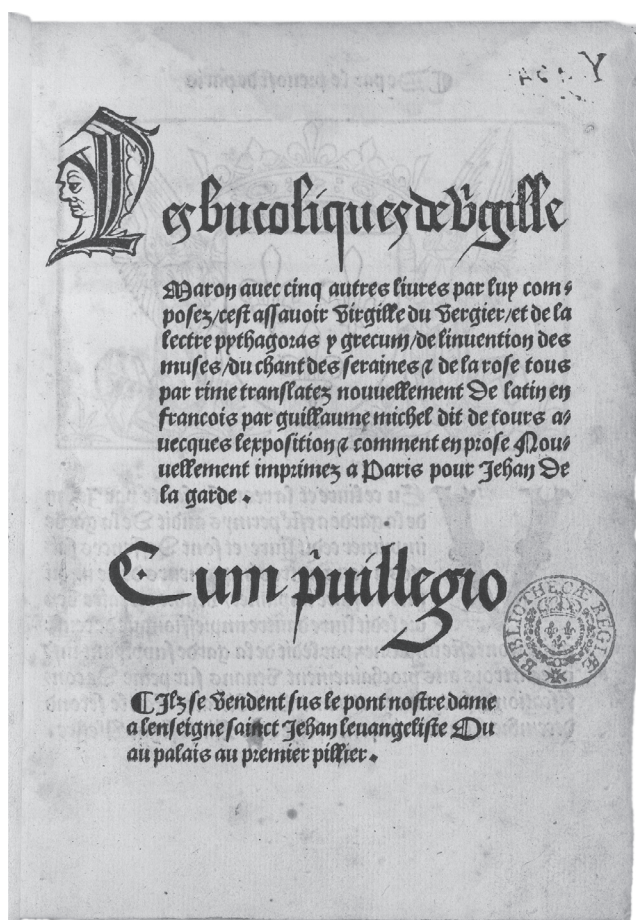 Les bucoliques de Virgille
Maron auec cinq autres liures par luy com⸗
posez/cest assauoir Virgille du Vergier/et de la
lectre pythagoras y grecum/de linuention des
muses/du chant des seraines & de la rose tous
par rime translatez nouuellement De latin en
francois par guillaume michel dit de tours a⸗
uecques lexposition & comment en prose Nou⸗
uellement imprimez a Paris pour Jehan De
la garde .
Cum p̄uillegio
BIBLIOTHECÆ REGIÆ
¶ Ilz se Vendent sus le pont nostre dame
a lenseigne sainct Jehan leuangeliste Ou
au palais au premier pillier .